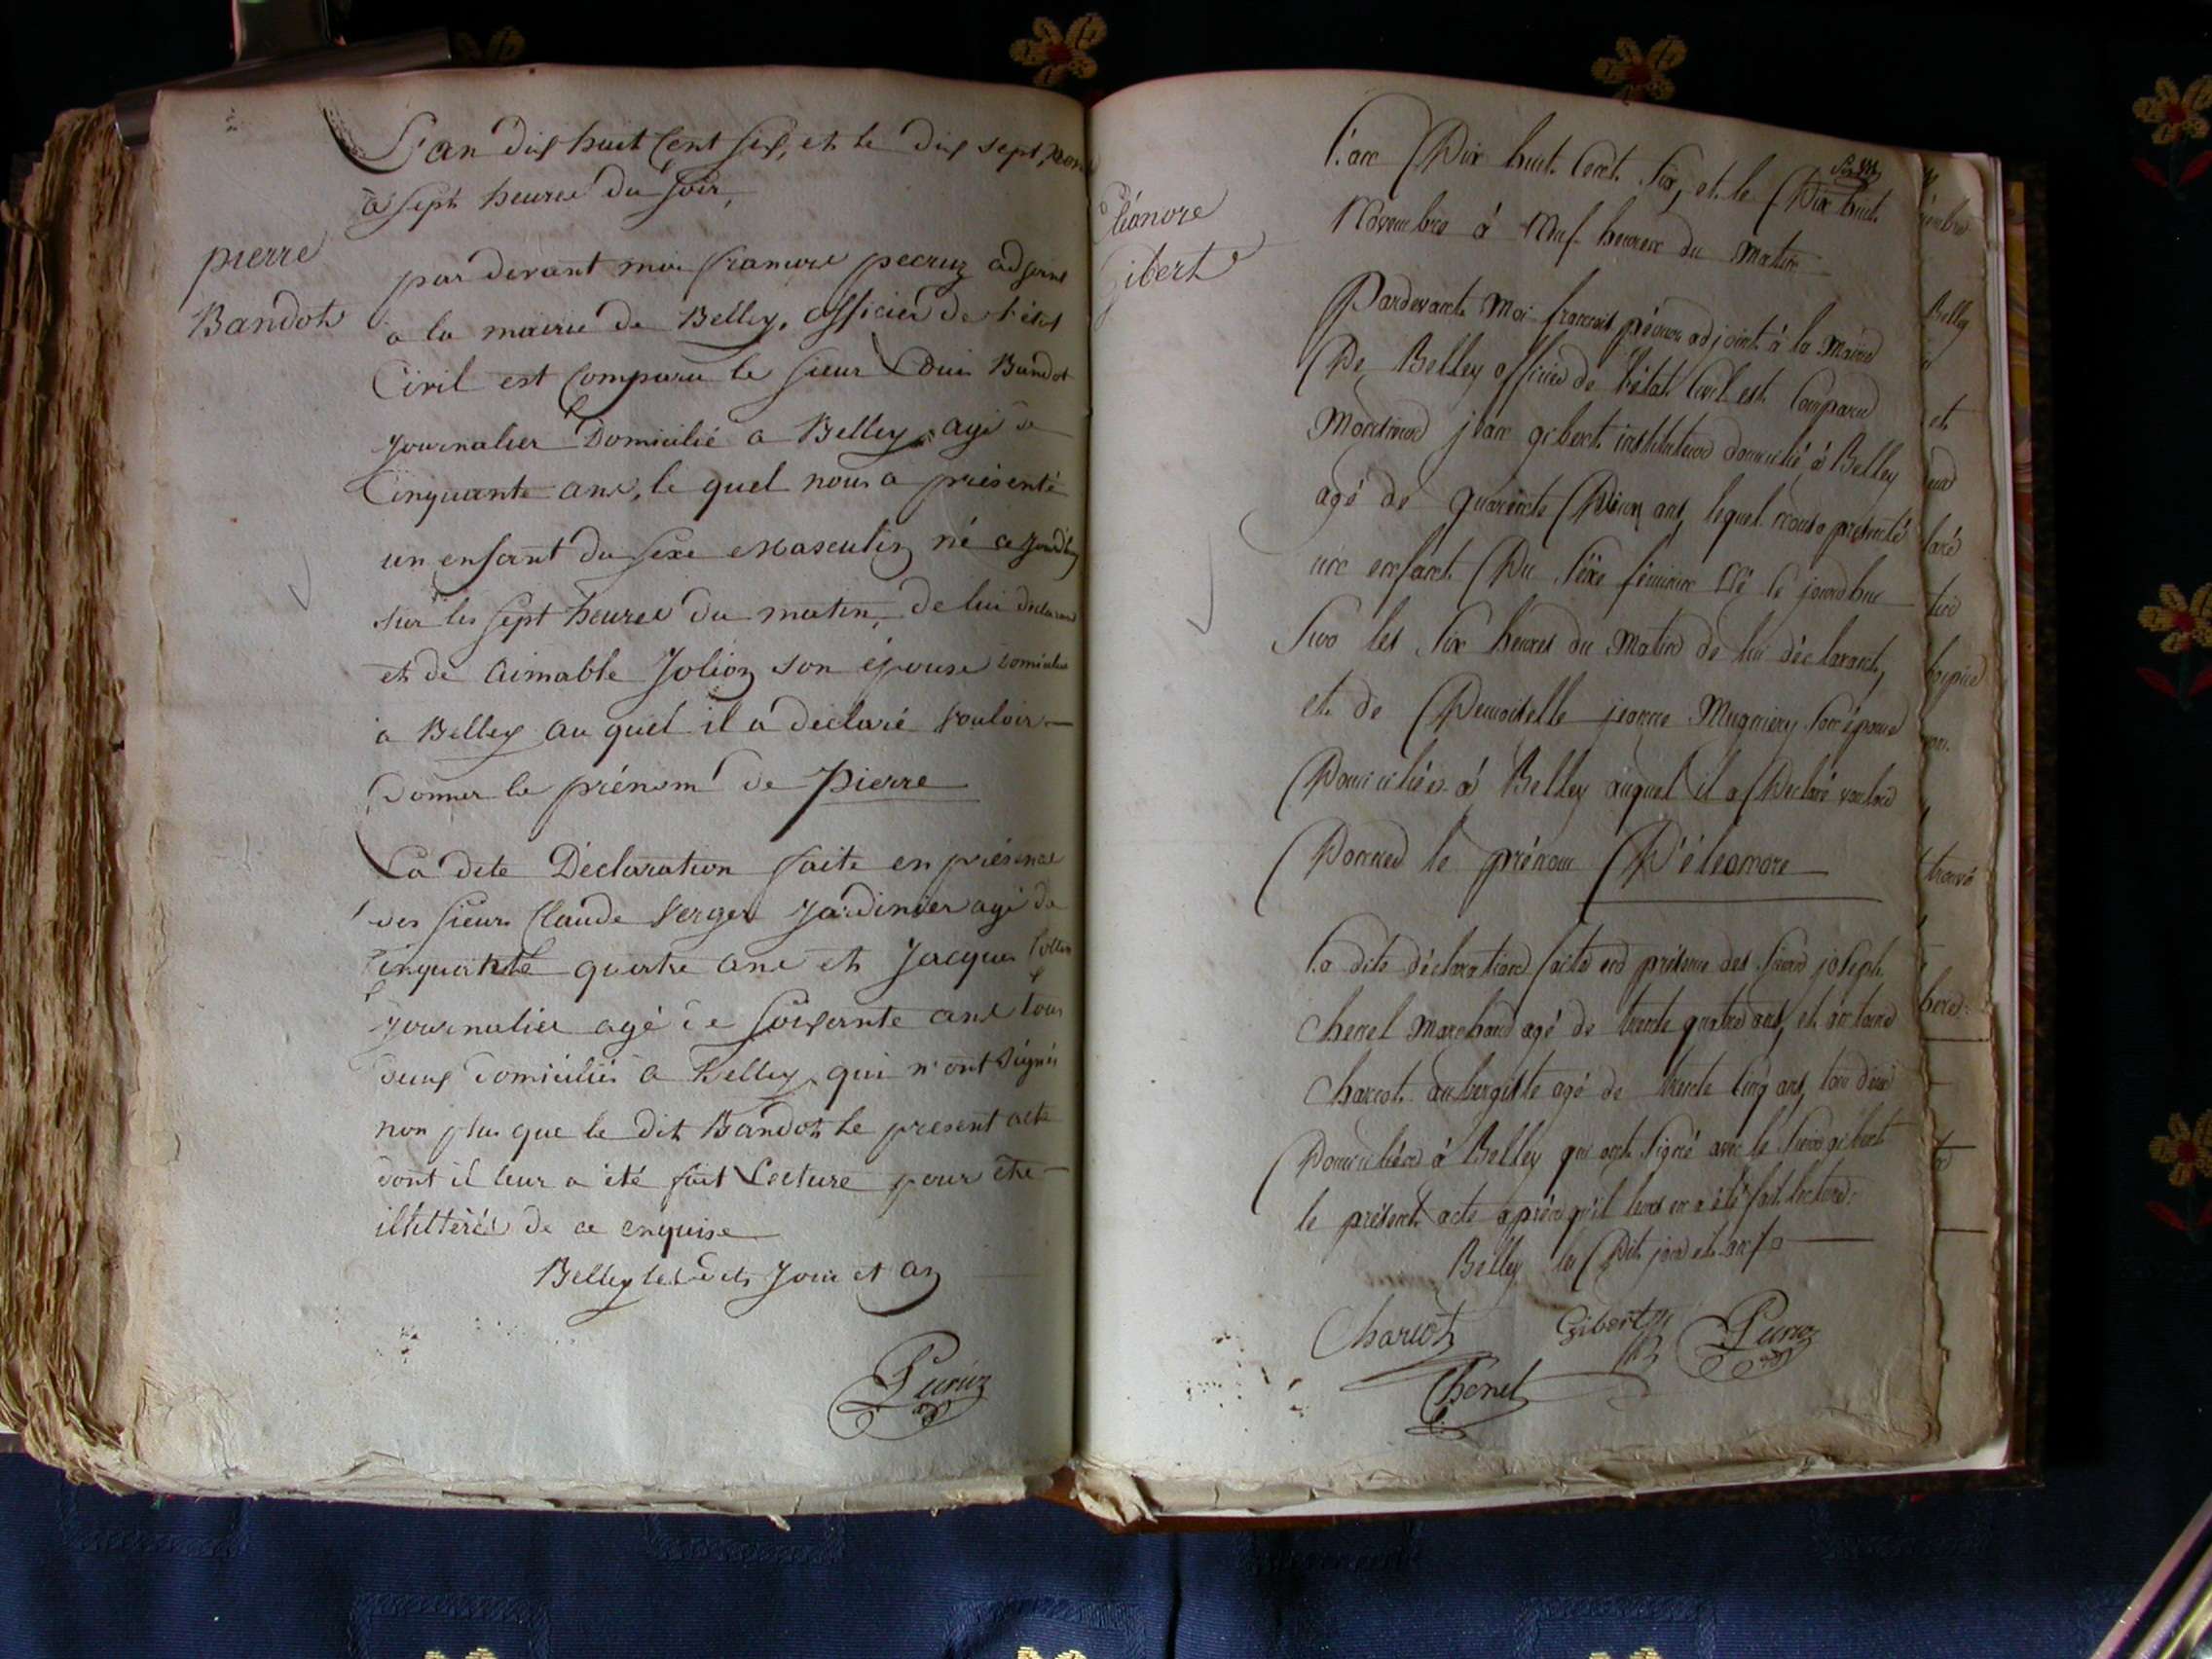 L'an dix huit Cent six, et le dix sept
à sept heures du soir,
pierre
Bandot
par devant moi françois pecruz adjoint
a la mairie de Belley, officier de l'état
Civil est Comparu le sieur Louis Bandot
Journalier Domicilié a Belley, agé de
Cinquante ans, le quel nous a présenté
un enfant du sexe Masculin né ce jourd'huy
sur les sept heures du matin, de lui déclarant
et de aimable Jolion son épouse
a Belley au quel il a déclaré vouloir
Donner le prénom de Pierre
La dite Déclaration faite en présence
des sieurs Claude Verger Jardinier agé de
Cinquante quatre ans et Jacques
Journalier agé de soixante ans tous
deux domiciliés a Belley, qui n'ont signés
non plus que le dit Bandot le present acte
dont il leur a été fait Lecture pour être
illettérés de ce enquise
Belley les dits Jour et an
Pecruz
Eléonore
Gibert
l'an Dix huit Cent Six, et le Dix huit
Novembre à Neuf heures du Matin
Pardevant Moi francois pécruz adjoint à la Mairie
De Belley officier de l'état Civil est Comparu
Monsieur jean gibert instituteur domicilié à Belley
agé de quarente Deux ans, lequel nous a presenté
un enfant Du Sexe féminin Né Ce jourd'hui
Sur les Six heures du Matin de lui déclarant,
et de Demoiselle jeanne Mugniery Son épouse
Domiciliés à Belley auquel il a Declaré vouloir
Donner le prénom D'éléonore
La dite déclaration faite en présence des Sieurs joseph
Chenel Marchand agé de trente quatre ans, et antoine
Charcot aubergiste agé de trente Cinq ans, tous deux
Domiciliés à Belley qui ont Signé avec le Sieur gibert
le présent acte après qu'il leurs en a été fait lecture.
Belley les Dits jour et an
Charcot Gibert Pecruz
Chenel
Belley
et
trouvé